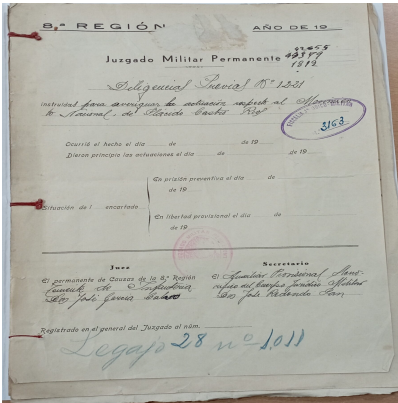 8.ª REGIÓN AÑO DE 19
Juzgado Militar Permanente
1819
Diligencias Previas Nº 1221
instruidas para averiguar la actuación respecto al Movimien
to Nacional, de Plácido Castro Rey
3163
Ocurrió el hecho el día de de 19
Dieron principio las actuaciones el día de de 19
En prisión preventiva el día de
de 19
Situación de l encartado
En libertad provisional el día de
de 19
Juez
El permanente de Causas de la 8.ª Región
Don José García
Secretario
El Auxiliar Provisional
del Cuerpo Jurídico Militar
Don José Redondo
Registrado en el general del Juzgado al núm.
Legajo 28 nº 1.011